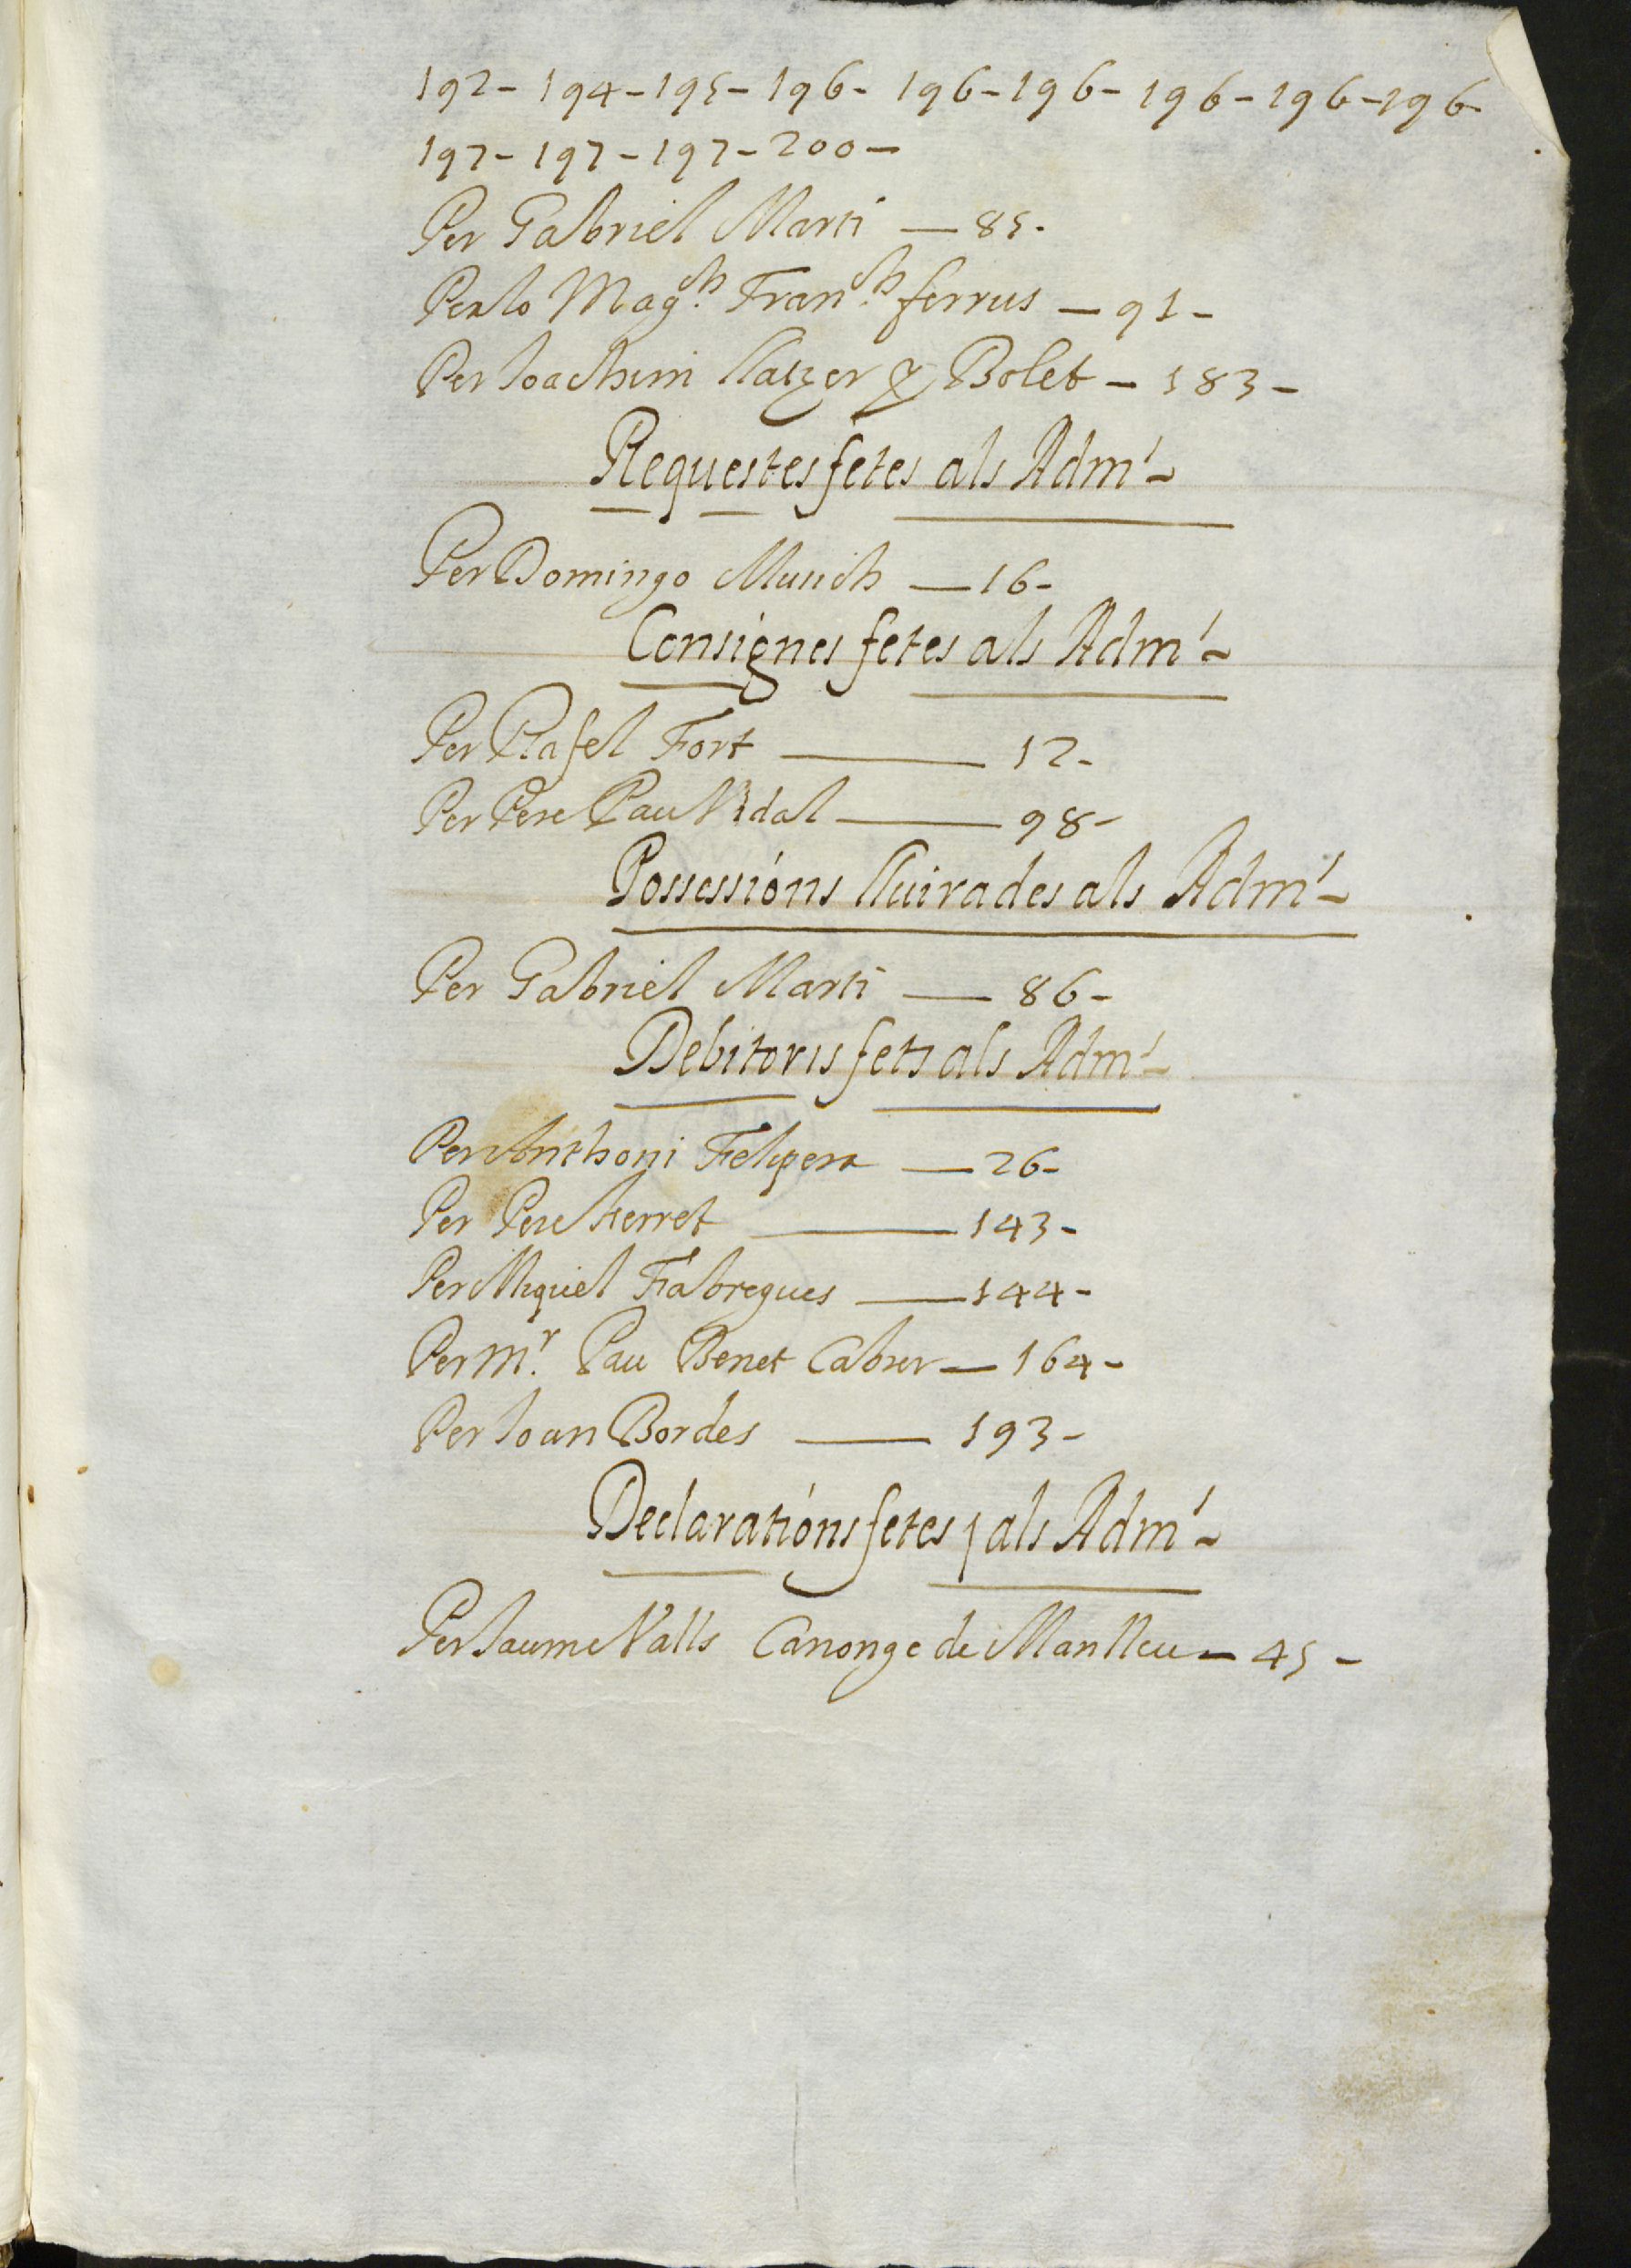 192 - 194 - 195 - 196 - 196 - 196 - 196 - 196 - 196 -
197 - 197 - 197 - 200 -
Per Gabriel Marti — 85 -
Per lo Mag.ch Fran.ch ferrus — 91 -
Per Joachim llatzer y Bolet — 183 -
Requestes fetes als Adm.
Per Domingo Munich — 16 -
Consignes fetes als Adm.
Per Rafel Fort — 12 -
Per Pere Pau Vidal — 98 -
Possessións lliurades als Adm.
Per Gabriel Marti — 86 -
Debitoris fets als Adm.
Per Anthoni Felipera — 26 -
Per Pere — 143 -
Per Miquel Fabregues — 144 -
Per M.r Pau Benet Cabrer — 164 -
Per Joan Bordes — 193 -
Declaratións fetes p als Adm.
Per Jaume Valls Canonge de Manlleu — 45 -